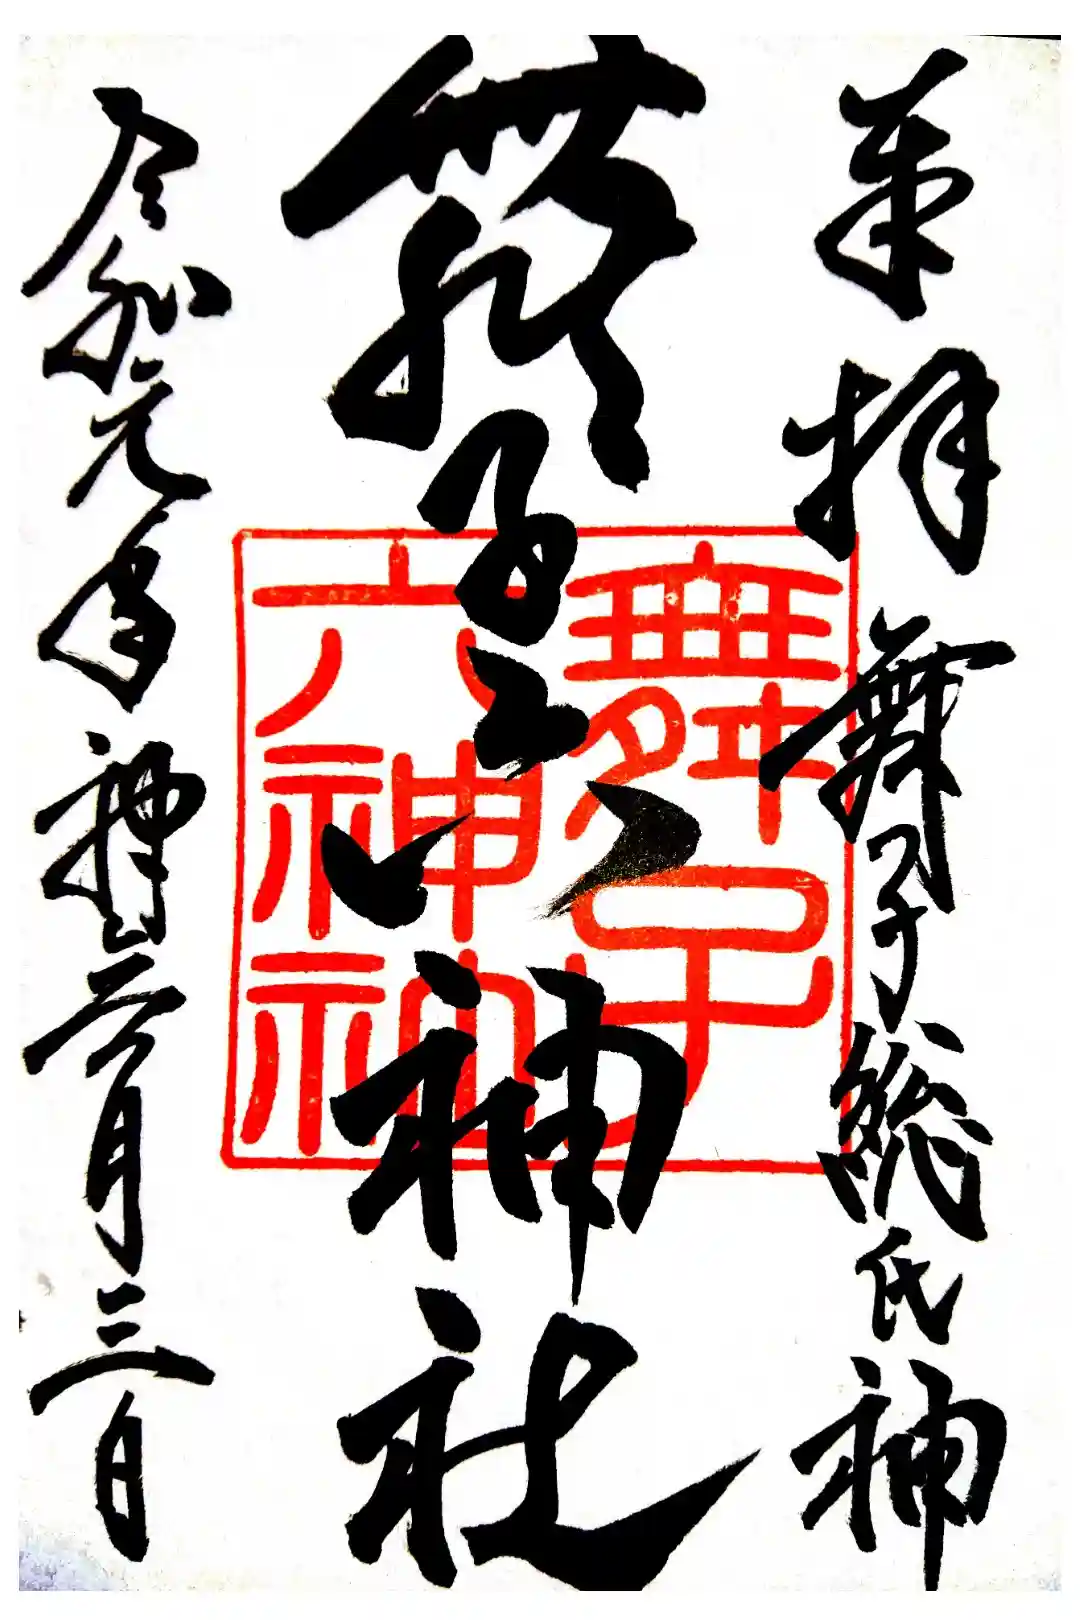 奉拝 舞子総氏神
舞子六神社
舞子
六神社
令和元年 種 六月三日